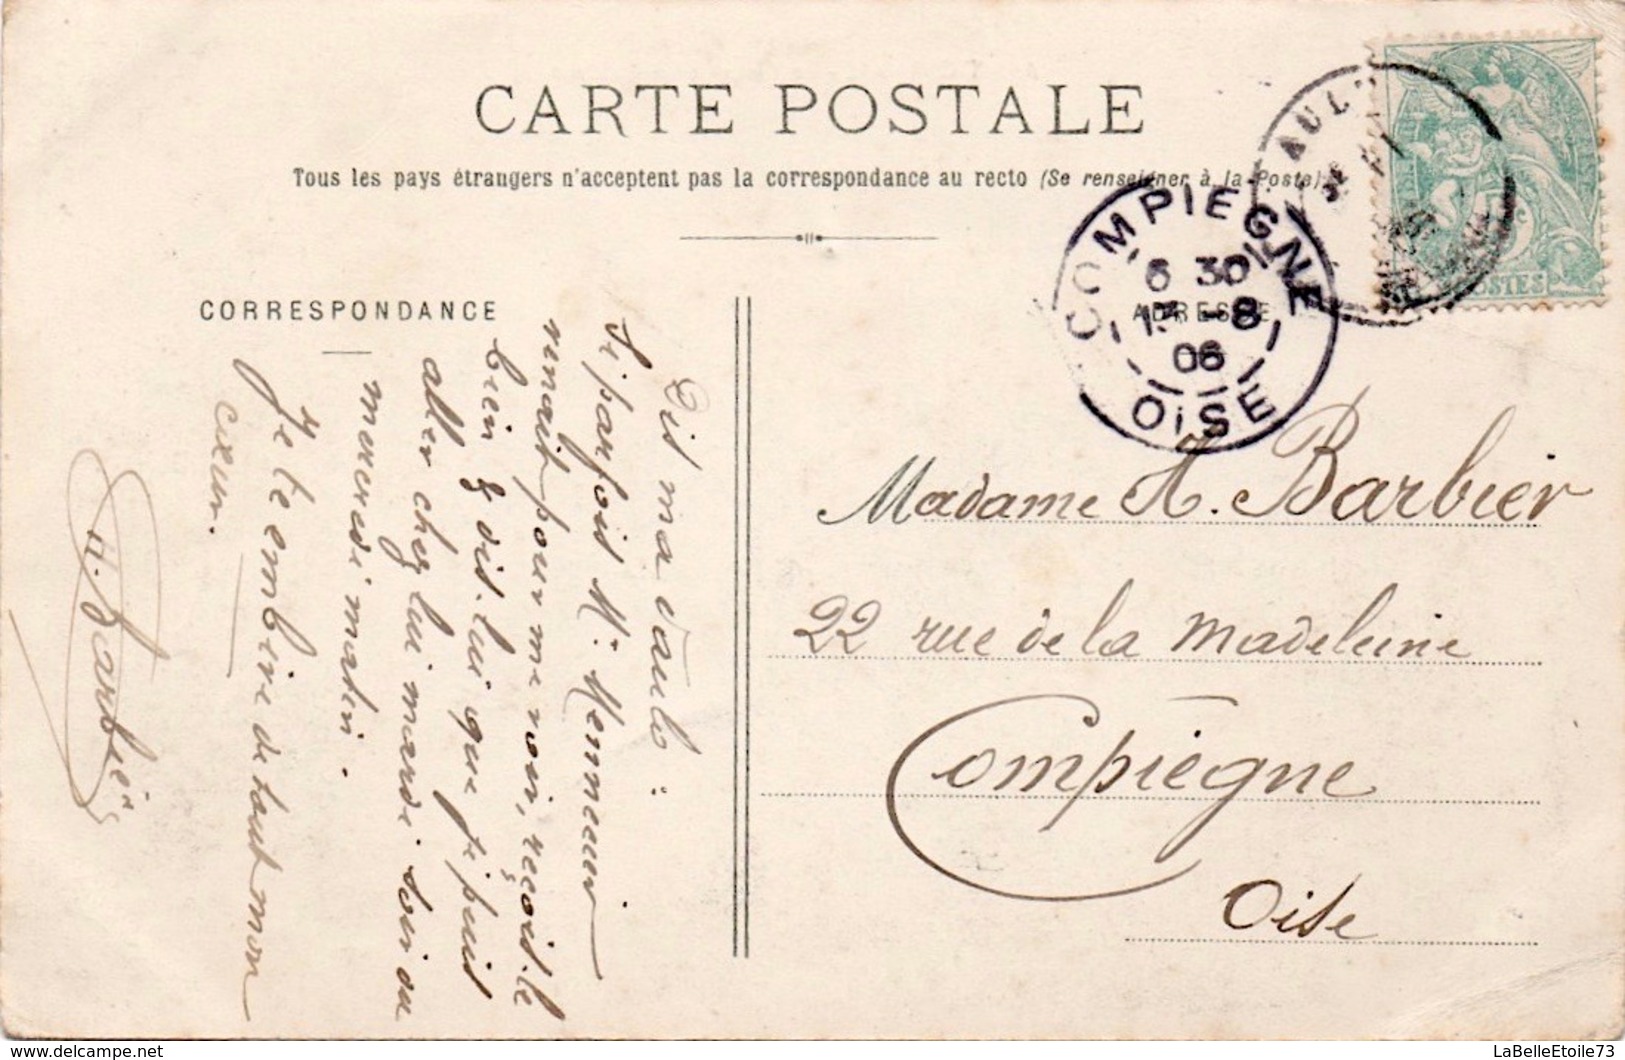 CARTE POSTALE
Tous les pays étrangers n'acceptent pas la correspondance au recto (Se renseigner à la Poste)
CORRESPONDANCE
ADRESSE
COMPIEGNE
6 30
-8
06
OISE
AUL
5c
POSTES
Dis ma
Si parfois Mr
venait pour me voir, reçois-le
bien & dis-lui que je puis
aller chez lui mardi soir ou
mercredi matin.
Je t'embrasse de tout mon
cœur.
H. Barbier
Madame H. Barbier
22 rue de la Madeleine
Compiègne
Oise
LaBelleEtoile73